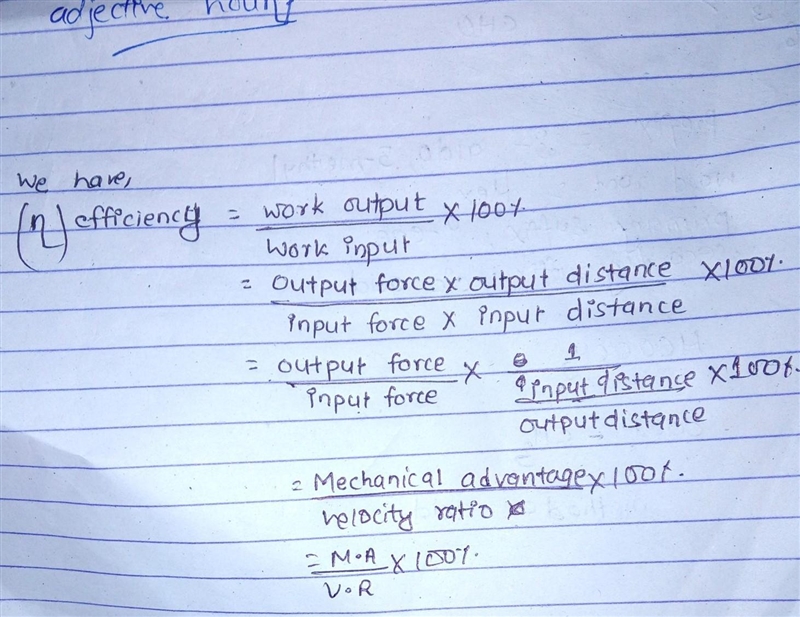 adjective noun
We have,
(η) efficiency = work output / work input × 100%
= output force × output distance / input force × input distance × 100%.
= output force / input force × 1 / input distance / output distance × 100%.
= Mechanical advantage / velocity ratio × 100%.
= M.A / V.R × 100%.